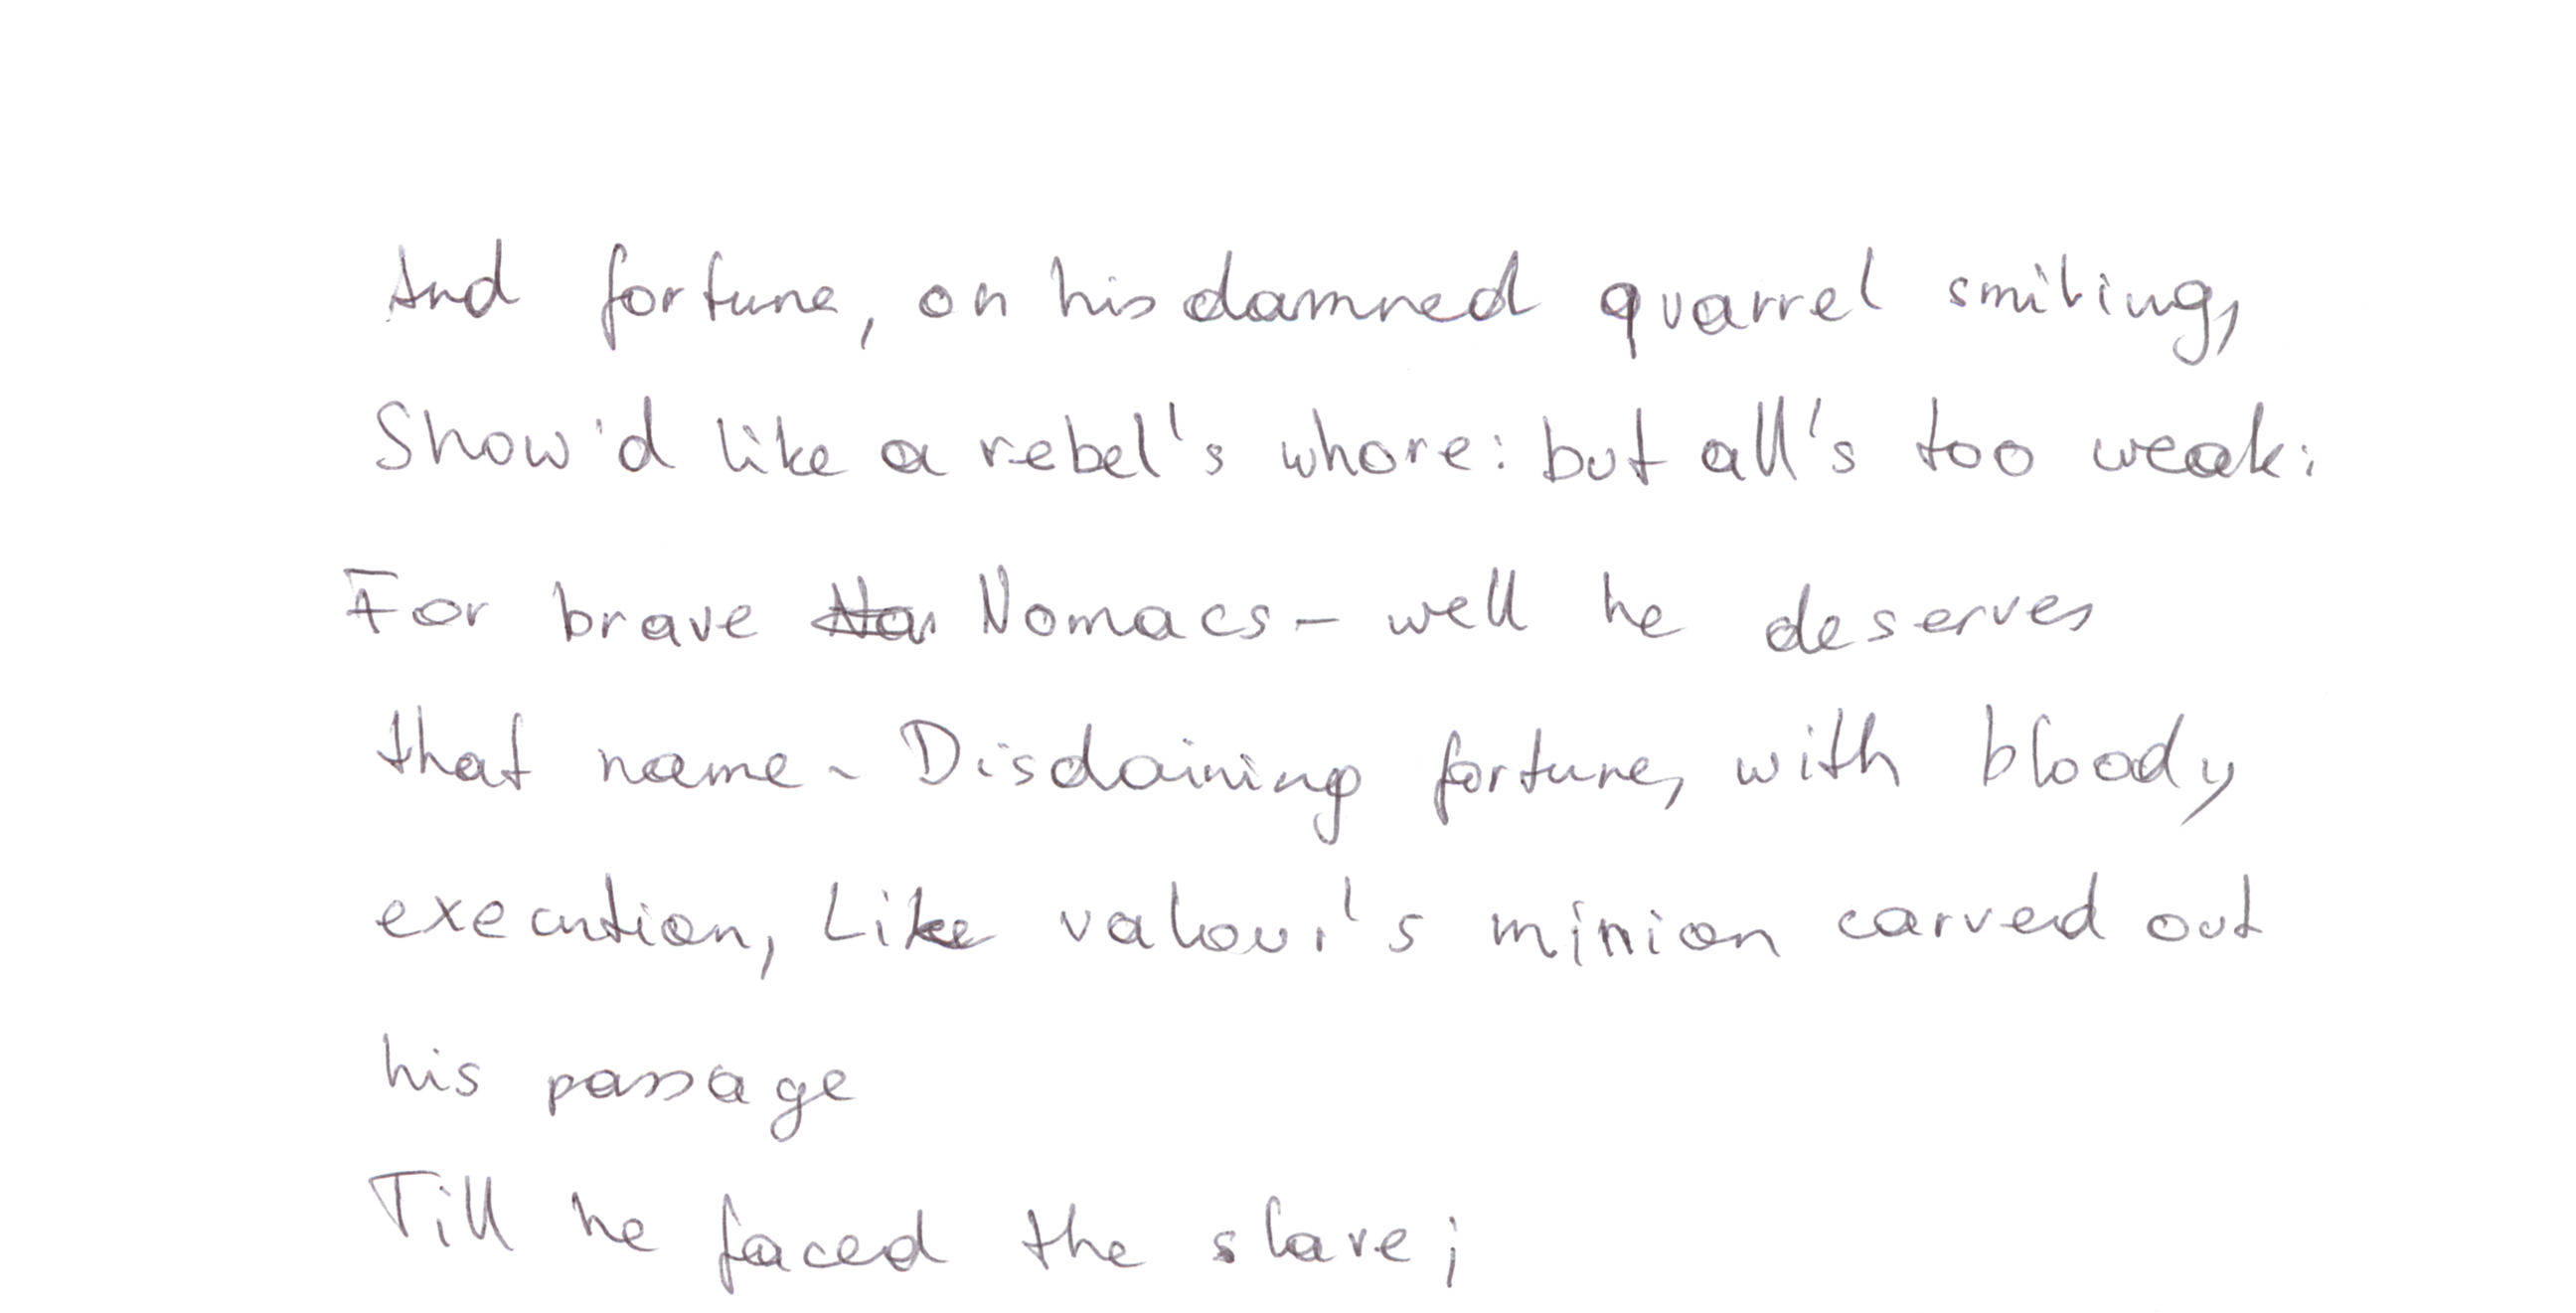 And fortune, on his damned quarrel smiling,
Show'd like a rebel's whore: but all's too weak:
For brave Nomacs - well he deserves
that name - Disdaining fortune, with bloody
execution, Like valour's minion carved out
his passage
Till he faced the slave;